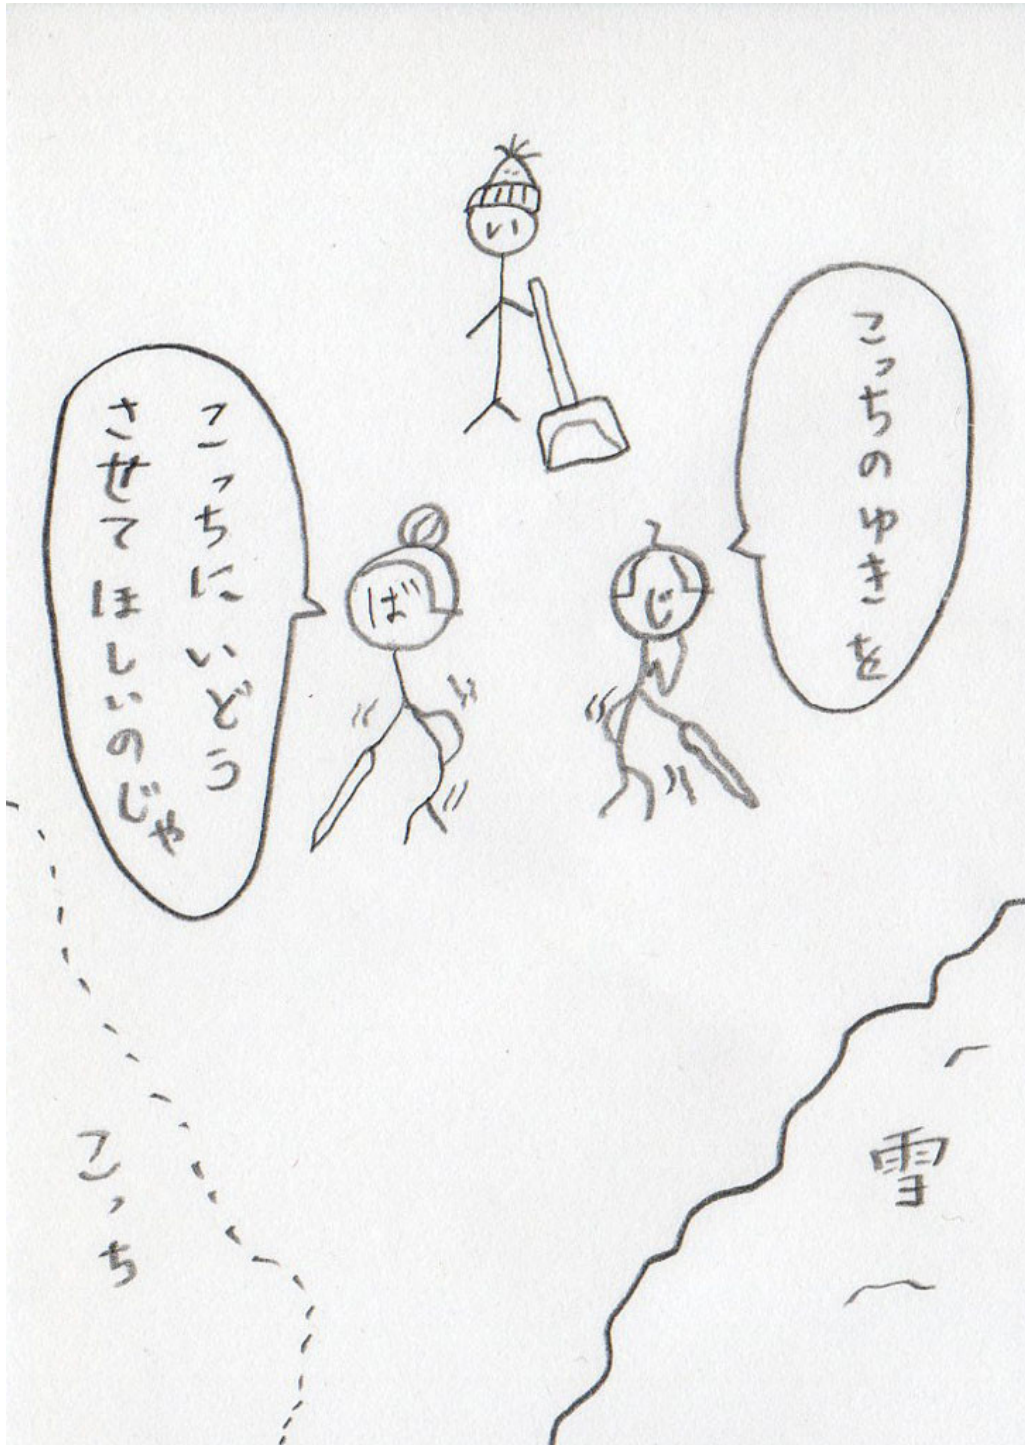 い
こっちのゆきを
じ
ば
こっちにいどう
させてほしいのじゃ
こっち
雪